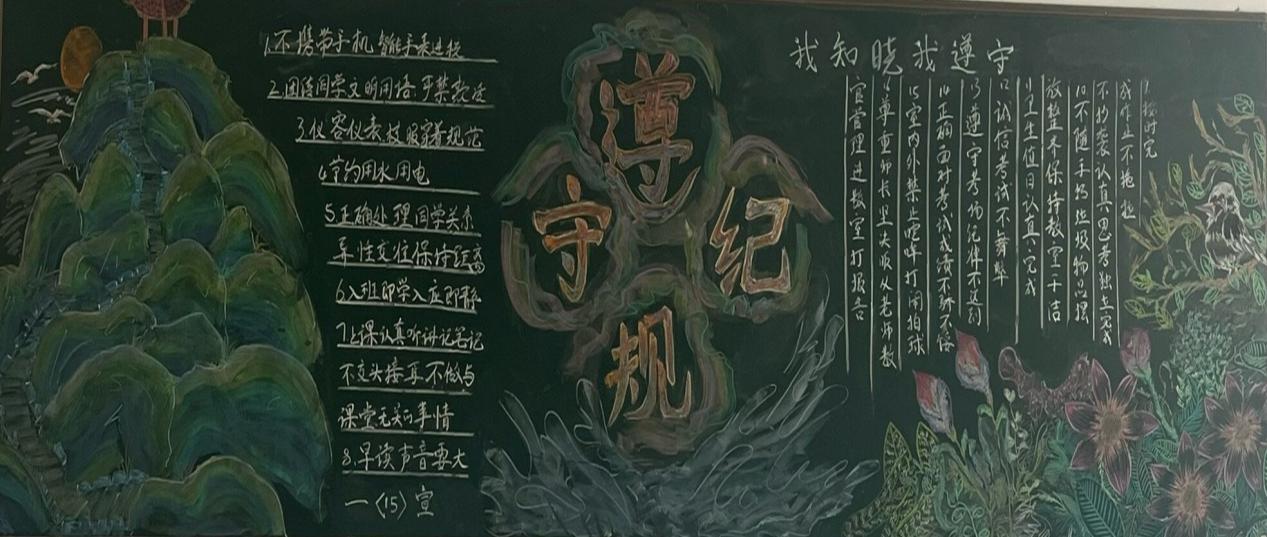 1.不携带手机 智能手表进校
2.团结同学文明用语 严禁欺凌
3.仪容仪表校服穿着规范
4.节约用水用电
5.正确处理同学关系
异性交往保持距离
6.入班即学入座即静
7.上课认真听讲记笔记
不交头接耳不做与
课堂无关的事情
8.早读声音要大
一〈15〉宣
遵
守 纪
规
我知晓我遵守
9.按时完
成作业不拖拉
不抄袭认真思考独立完成
10不随手扔垃圾物品摆
放整齐保持教室干洁
11卫生值日认真完成
12诚信考试不舞弊
13遵守考场纪律不迟到
14正确面对考试成绩不骄不馁
15室内外禁止喧哗打闹拍球
尊重师长坐头服从老师教
官管理进教室打报告